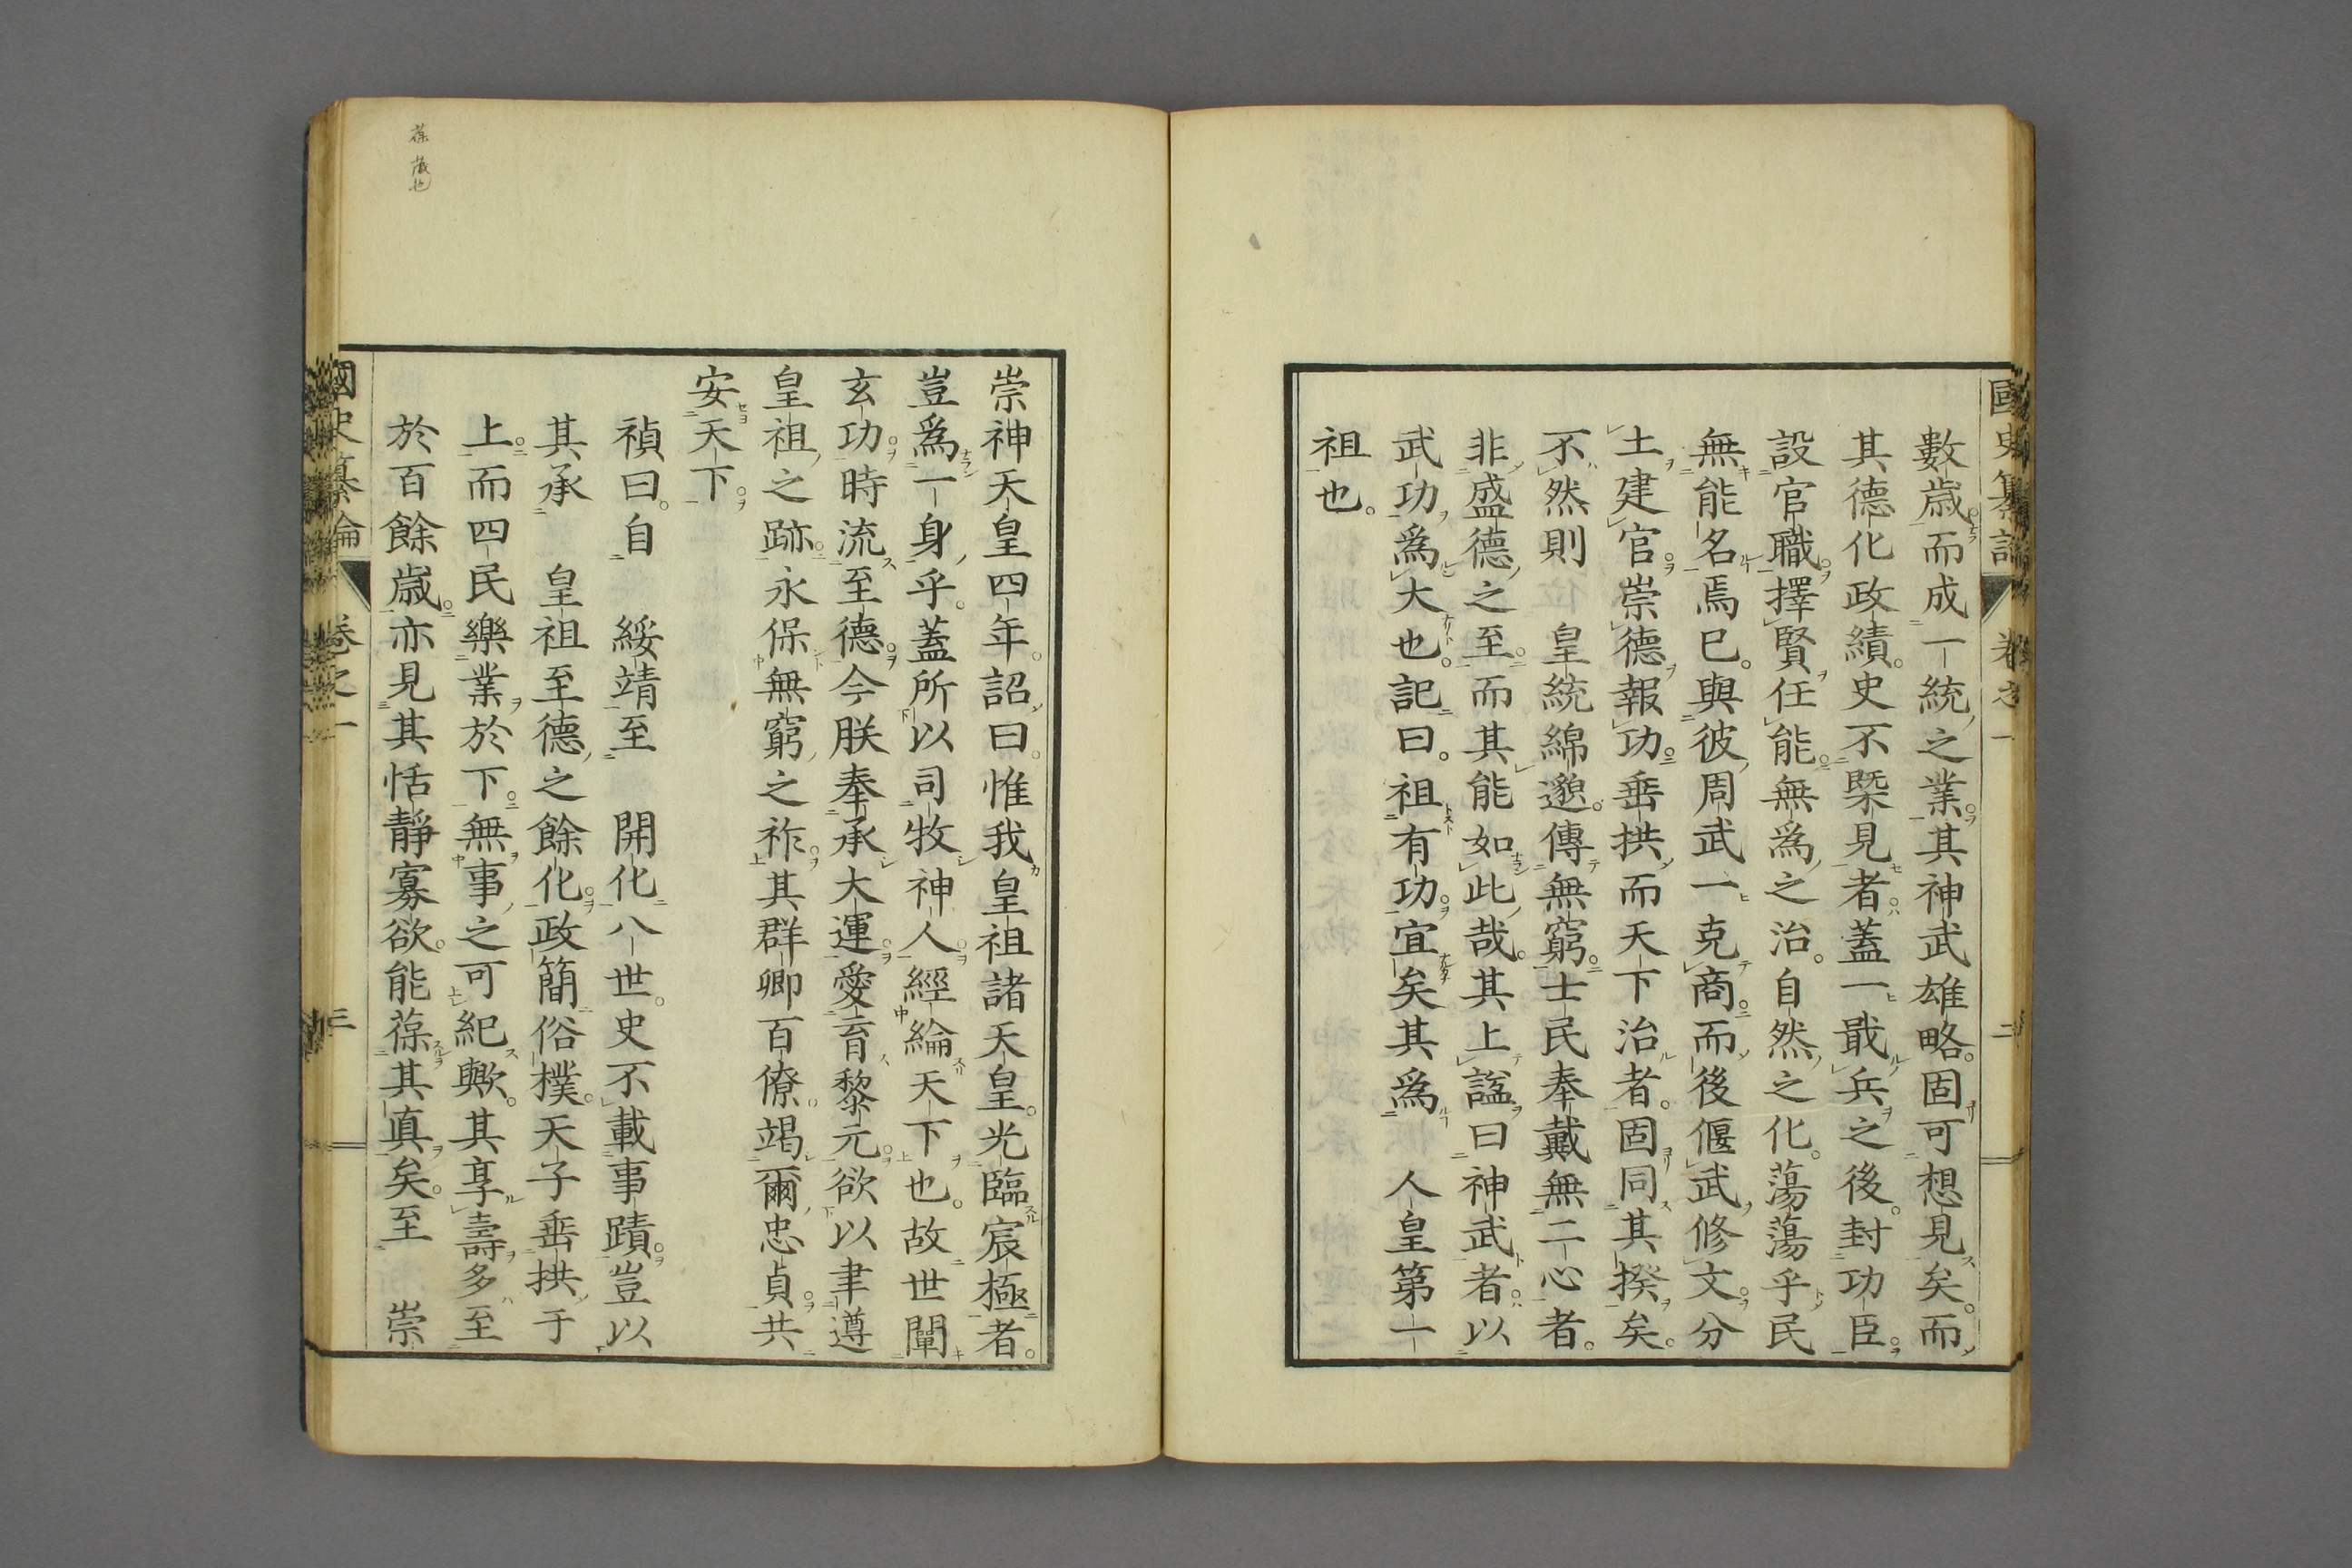 國史纂論 卷之一 二
數歳而成一統之業其神武雄略。固可想見矣。而
其德化政績。史不槩見者蓋一戢兵之後。封功臣。
設官職。擇賢任能。無爲之治。自然之化。蕩蕩乎民
無能名焉已。與彼周武一克商。而後偃武修文。分
土建官。崇德報功。垂拱而天下治者。固同其揆矣。
不然則 皇統綿邈。傳無窮。士民奉戴無二心者。
非盛德之至。而其能如此哉。其上謚曰神武者。以
武功爲大也。記曰。祖有功。宜矣其爲 人皇第一
祖也。
崇神天皇四年。詔曰。惟我皇祖諸天皇。光臨宸極者。
豈爲一身乎。蓋所以司牧神人。經綸天下也。故世闡
玄功。時流至德。今朕奉承大運。愛育黎元。欲以聿遵
皇祖之跡。永保無窮之祚。其群卿百僚。竭爾忠貞。共
安天下。
禎曰。自 綏靖至 開化八世。史不載事蹟。豈以
其承 皇祖至德之餘化。政簡俗樸。天子垂拱于
上。而四民樂業於下。無事之可紀歟。其享壽多至
於百餘歳。亦見其恬靜寡欲。能葆其真矣。至 崇
國史纂論 卷之一 三
葆 藏也